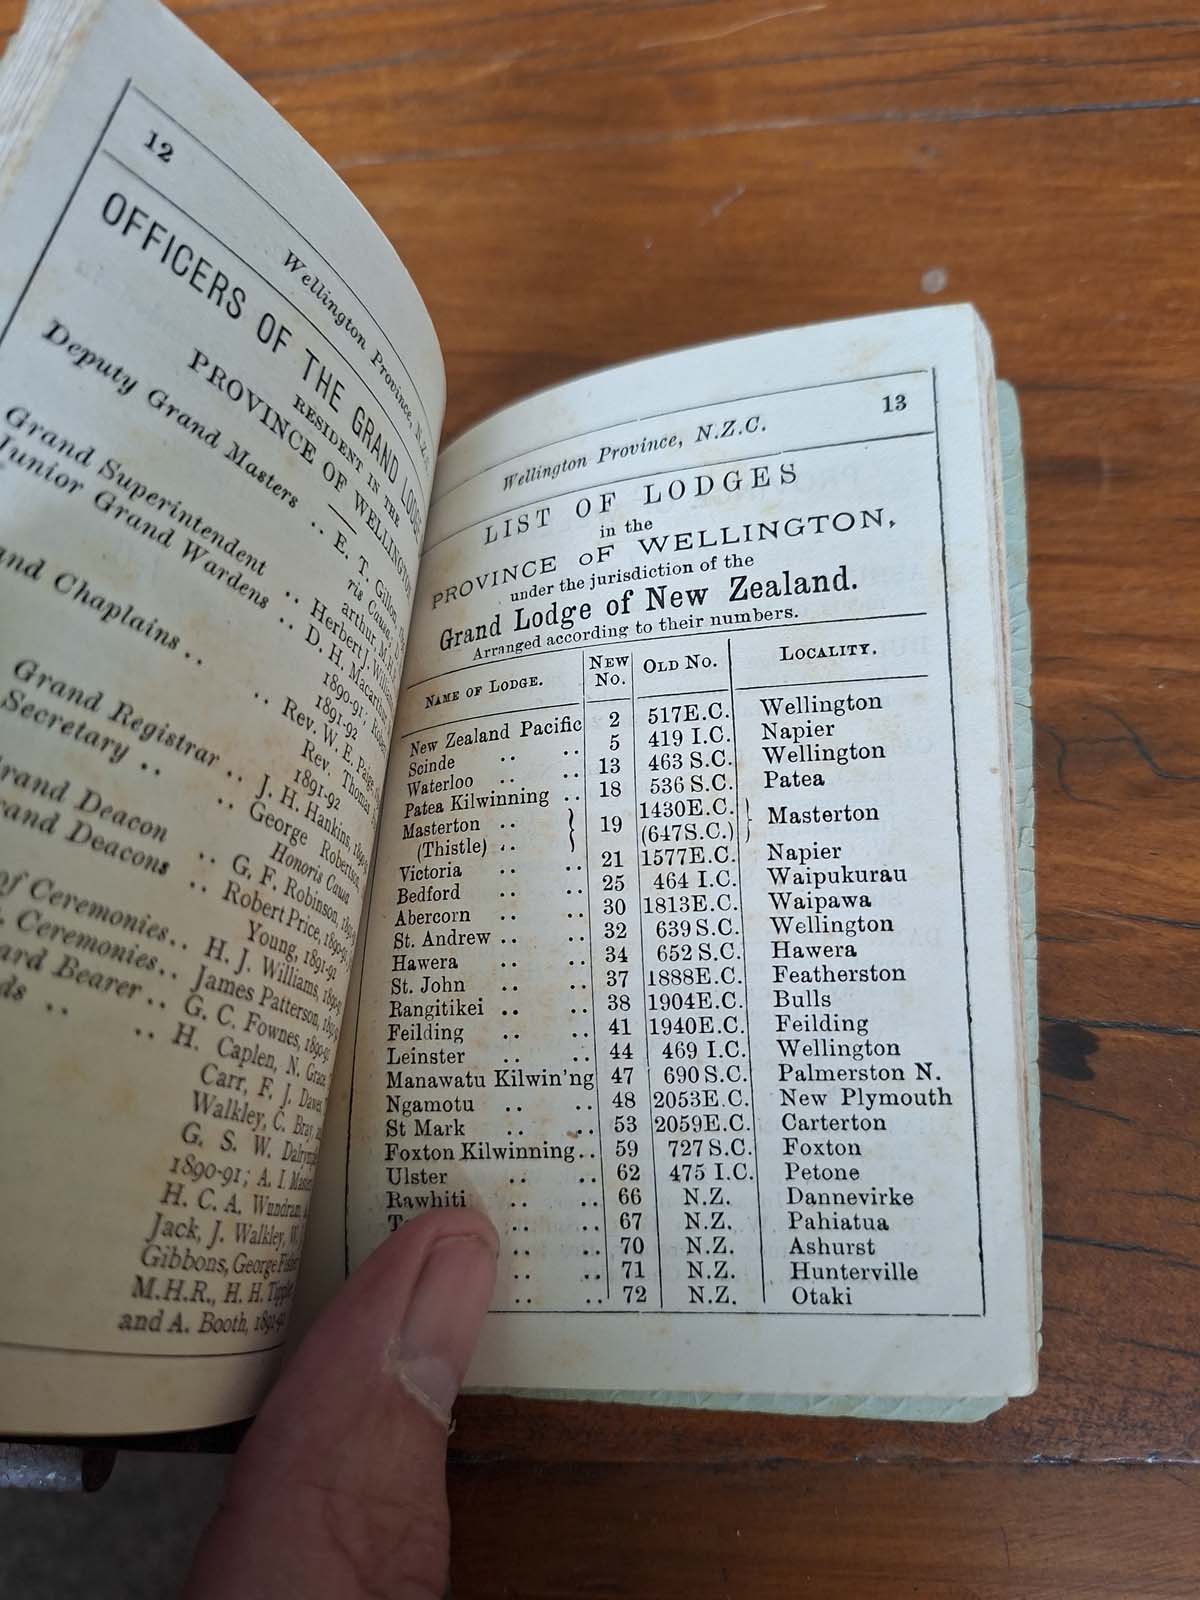 12
Wellington Province, N.Z.C.
OFFICERS OF THE GRAND LODGE
RESIDENT IN THE
PROVINCE OF WELLINGTON
Deputy Grand Masters .. E. T. Gillon,
ris Causa
arthur M.H.R.
Grand Superintendent .. Herbert J. Williams
Junior Grand Wardens .. D. H. Macarthur
1890-91; Robert
1891-92
and Chaplains .. .. Rev. W. E. Paige,
Rev. Thomas
1891-92
Grand Registrar .. J. H. Hankins,
Secretary .. .. George Robertson,
Honoris Causa
Grand Deacon .. G. F. Robinson,
Grand Deacons .. Robert Price, 1890-91
Young, 1891-92
of Ceremonies .. H. J. Williams,
Ceremonies .. James Patterson,
ard Bearer .. G. C. Fownes, 1890-91
ds .. .. H. Caplen, N. Grace,
Carr, F. J.
Walkley, C. Bray,
G. S. W.
1890-91; A. I.
H. C. A. Wundram,
Jack, J. Walkley, W.
Gibbons, George
M.H.R., H. H.
and A. Booth,
13
Wellington Province, N.Z.C.
LIST OF LODGES
in the
PROVINCE OF WELLINGTON,
under the jurisdiction of the
Grand Lodge of New Zealand.
Arranged according to their numbers.
NAME OF LODGE. NEW No. OLD No. LOCALITY.
New Zealand Pacific 2 517E.C. Wellington
Scinde .. .. 5 419 I.C. Napier
Waterloo .. .. 13 463 S.C. Wellington
Patea Kilwinning .. 18 536 S.C. Patea
Masterton .. } 19 1430E.C. } Masterton
(Thistle) .. (647S.C.)
Victoria .. .. 21 1577E.C. Napier
Bedford .. .. 25 464 I.C. Waipukurau
Abercorn .. .. 30 1813E.C. Waipawa
St. Andrew .. .. 32 639 S.C. Wellington
Hawera .. .. 34 652 S.C. Hawera
St. John .. .. 37 1888E.C. Featherston
Rangitikei .. .. 38 1904E.C. Bulls
Feilding .. .. 41 1940E.C. Feilding
Leinster .. .. 44 469 I.C. Wellington
Manawatu Kilwin'ng 47 690 S.C. Palmerston N.
Ngamotu .. .. 48 2053E.C. New Plymouth
St Mark .. .. 53 2059E.C. Carterton
Foxton Kilwinning .. 59 727 S.C. Foxton
Ulster .. .. 62 475 I.C. Petone
Rawhiti .. .. 66 N.Z. Dannevirke
.. .. 67 N.Z. Pahiatua
.. .. 70 N.Z. Ashurst
.. .. 71 N.Z. Hunterville
.. .. 72 N.Z. Otaki